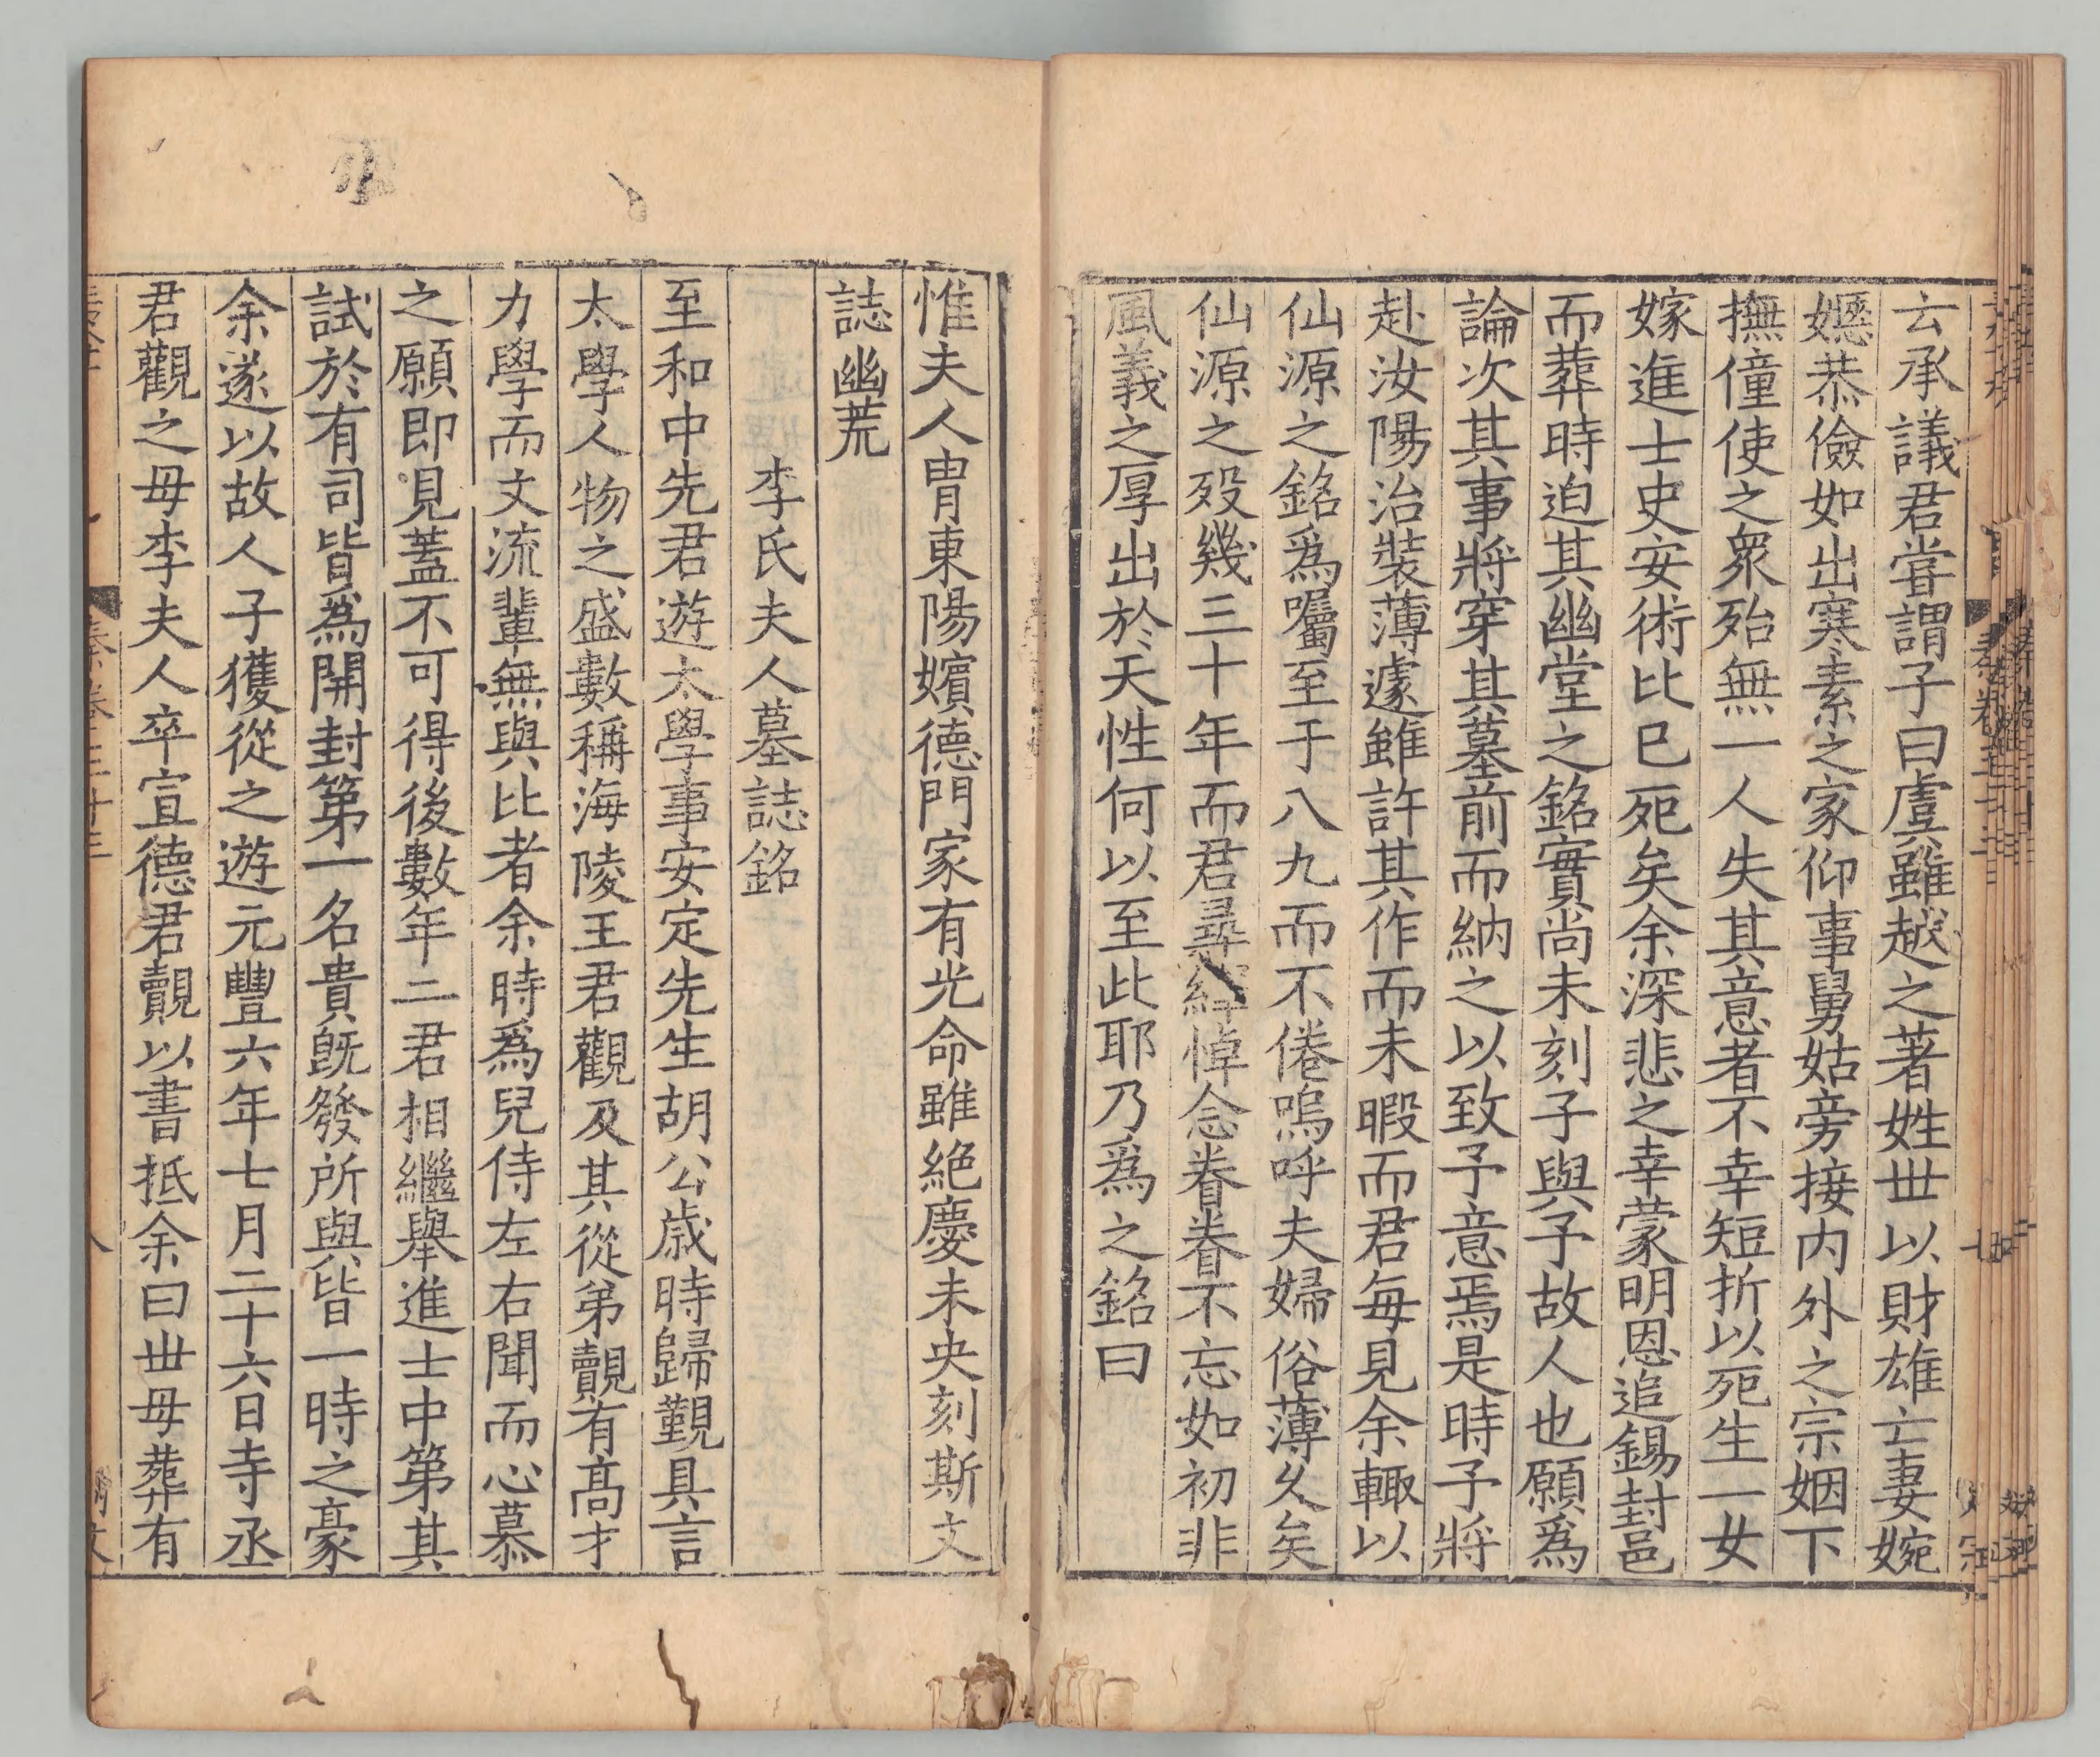 云承議君嘗謂子曰虞雖越之著姓丗以財雄亡妻婉
嬺恭儉如出寒素之家仰事舅姑旁接内外之宗姻下
撫僮使之衆殆無一人失其意者不幸短折以死生一女
嫁進士史安術比已死矣余深悲之幸蒙明恩追錫封邑
而葬時迫其幽堂之銘實尚未刻子與予故人也願爲
論次其事將穿其墓前而納之以致予意焉是時予將
赴汝陽治裝薄遽雖許其作而未暇而君毎見余輙以
仙源之銘爲囑至于八九而不倦嗚呼夫婦俗薄乆矣
仙源之殁幾三十年而君尋繹悼念眷眷不忘如初非
風義之厚出於天性何以至此耶乃爲之銘曰
惟夫人胄東陽嬪德門家有光命雖絶慶未央刻斯文
誌幽荒
李氏夫人墓誌銘
至和中先君遊太學事安定先生胡公歳時歸覲具言
太學人物之盛數稱海陵王君觀及其從弟覿有髙才
力學而文流輩無與比者余時爲兒侍左右聞而心慕
之願即見蓋不可得後數年二君相繼舉進士中第其
試於有司皆爲開封第一名貴旣發所與皆一時之豪
余遂以故人子獲從之遊元豐六年七月二十六日寺丞
君觀之母李夫人卒宣德君覿以書抵余曰丗母葬有